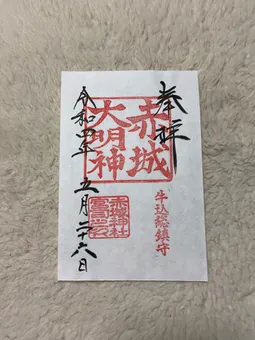 奉拝
赤城
大明神
牛込総鎮守
赤城神社
令和四年 五月二十六日